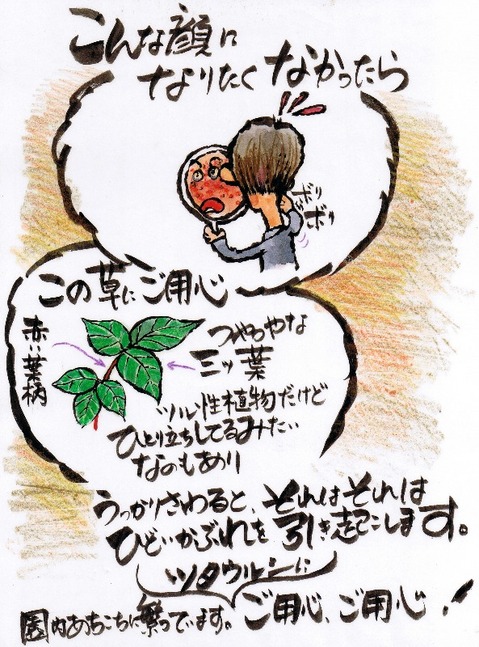 こんな顔に
なりたくなかったら
ボリ
ボリ
この草にご用心
赤い葉柄
つやつやな
三ッ葉
ツル性植物だけど
ひとり立ちしてるみたい
なのもあり
うっかりさわると、それはそれは
ひどいかぶれを引き起こします。
ツタウルシに
園内あちこちに繁っています。ご用心、ご用心!